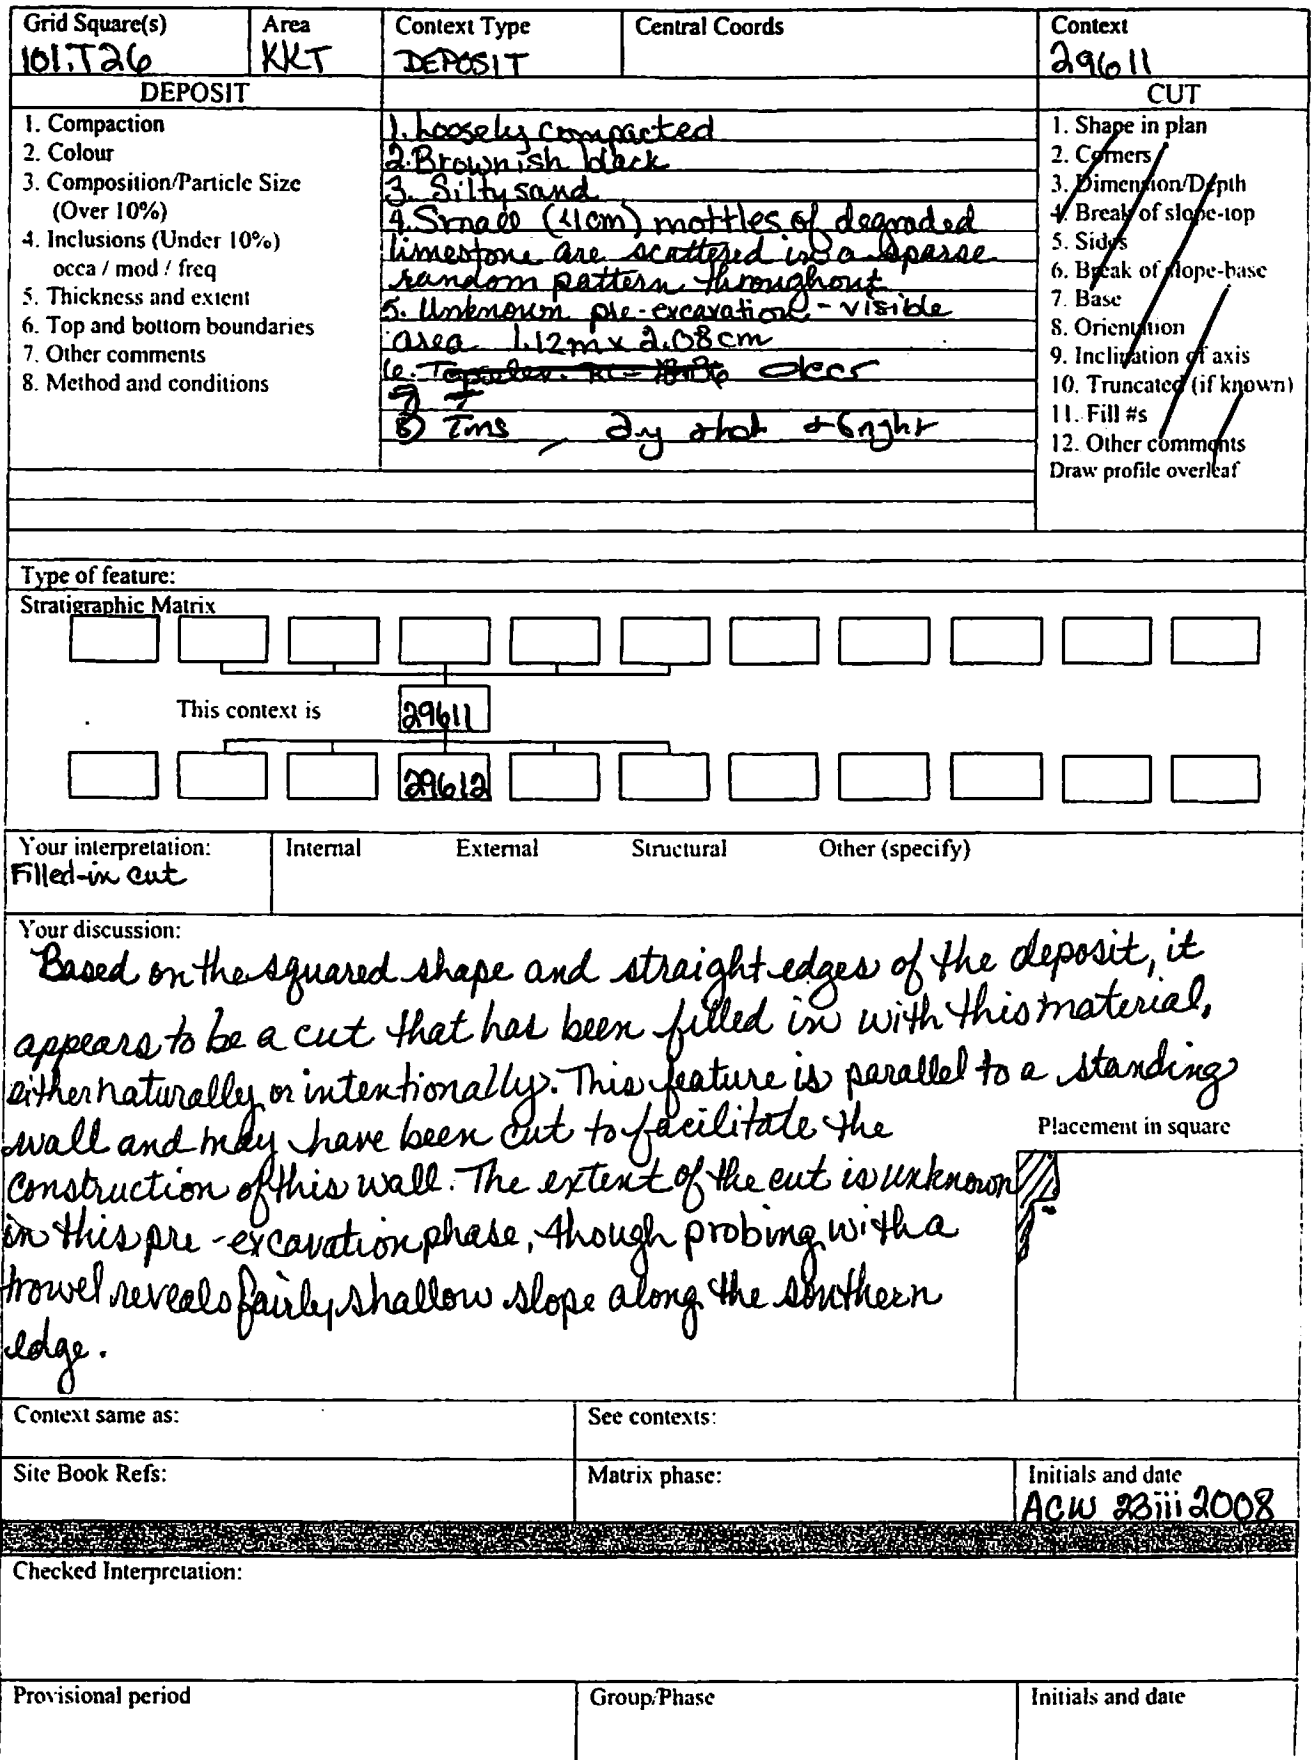 Grid Square(s) Area Context Type Central Coords Context
101.T26 KKT DEPOSIT 29611
DEPOSIT CUT
1. Compaction
2. Colour
3. Composition/Particle Size
(Over 10%)
4. Inclusions (Under 10%)
occa / mod / freq
5. Thickness and extent
6. Top and bottom boundaries
7. Other comments
8. Method and conditions
1. Loosely compacted
2. Brownish black
3. Silty sand
4. Small (<1cm) mottles of degraded
limestone are scattered in a sparse
random pattern throughout
5. Unknown pre-excavation - visible
area 1.12m x 2.08cm
6.
7
8) Tms, dry
1. Shape in plan
2. Corners
3. Dimension/Depth
4. Break of slope-top
5. Sides
6. Break of slope-base
7. Base
8. Orientation
9. Inclination of axis
10. Truncated (if known)
11. Fill #s
12. Other comments
Draw profile overleaf
Type of feature:
Stratigraphic Matrix
This context is 29611
29612
Your interpretation: Internal External Structural Other (specify)
Filled-in cut
Your discussion:
Based on the squared shape and straight edges of the deposit, it
appears to be a cut that has been filled in with this material,
either naturally or intentionally. This feature is parallel to a standing
wall and may have been cut to facilitate the
construction of this wall. The extent of the cut is unknown
in this pre-excavation phase, though probing with a
trowel reveals fairly shallow slope along the southern
edge.
Placement in square
Context same as: See contexts:
Site Book Refs: Matrix phase: Initials and date
ACW 23iii2008
Checked Interpretation:
Provisional period Group/Phase Initials and date